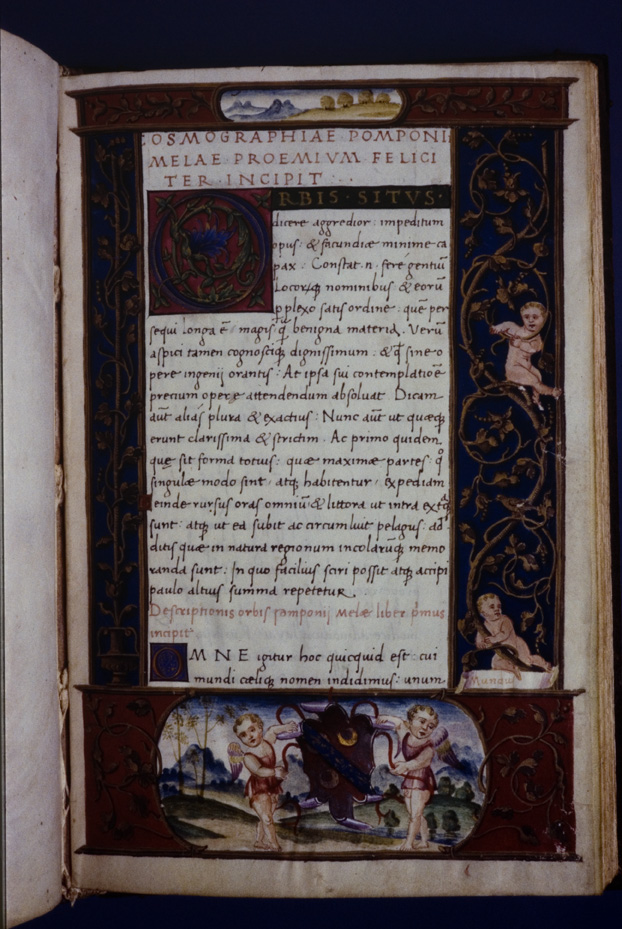 COSMOGRAPHIAE POMPONII
MELAE PROEMIVM FELICI
TER INCIPIT
ORBIS·SITVS
dicere aggredior: impeditum
opus: & facundiæ minime ca
pax: Constat .n. fere gentiū
Locorūqꝫ nominibus & eorū
p plexo satis ordine: quē per
sequi longa ē magis q̄ benigna materia. Verū
aspici tamen cognosciqꝫ dignissimum: & qđ sine o
pere ingenij orantis: At ipsa sui contemplatiōe
precium operæ attendendum absoluat. Dicam
aūt aliās plura & exactius: Nunc aūt ut quæqꝫ
erunt clarissima & strictim. Ac primo quidem
quæ sit forma totius: quæ maximæ partes: q̊
singulæ modo sint, atqꝫ habitentur, expediam
einde rursus oras omniū & littora ut intra extqꝫ
sunt: atqꝫ ut ea subit ac circumluit pelagus: ad
ditis quæ in natura regionum incolarūqꝫ memo
randa sunt: In quo facilius sciri possit atqꝫ accipi
paulo altius summa repetetur.
Descriptionis orbis pomponij Melæ liber pͥmus
incipit
OMNE igitur hoc quicquid est: cui
mundi cæliqꝫ nomen indidimus: unum
Mundus